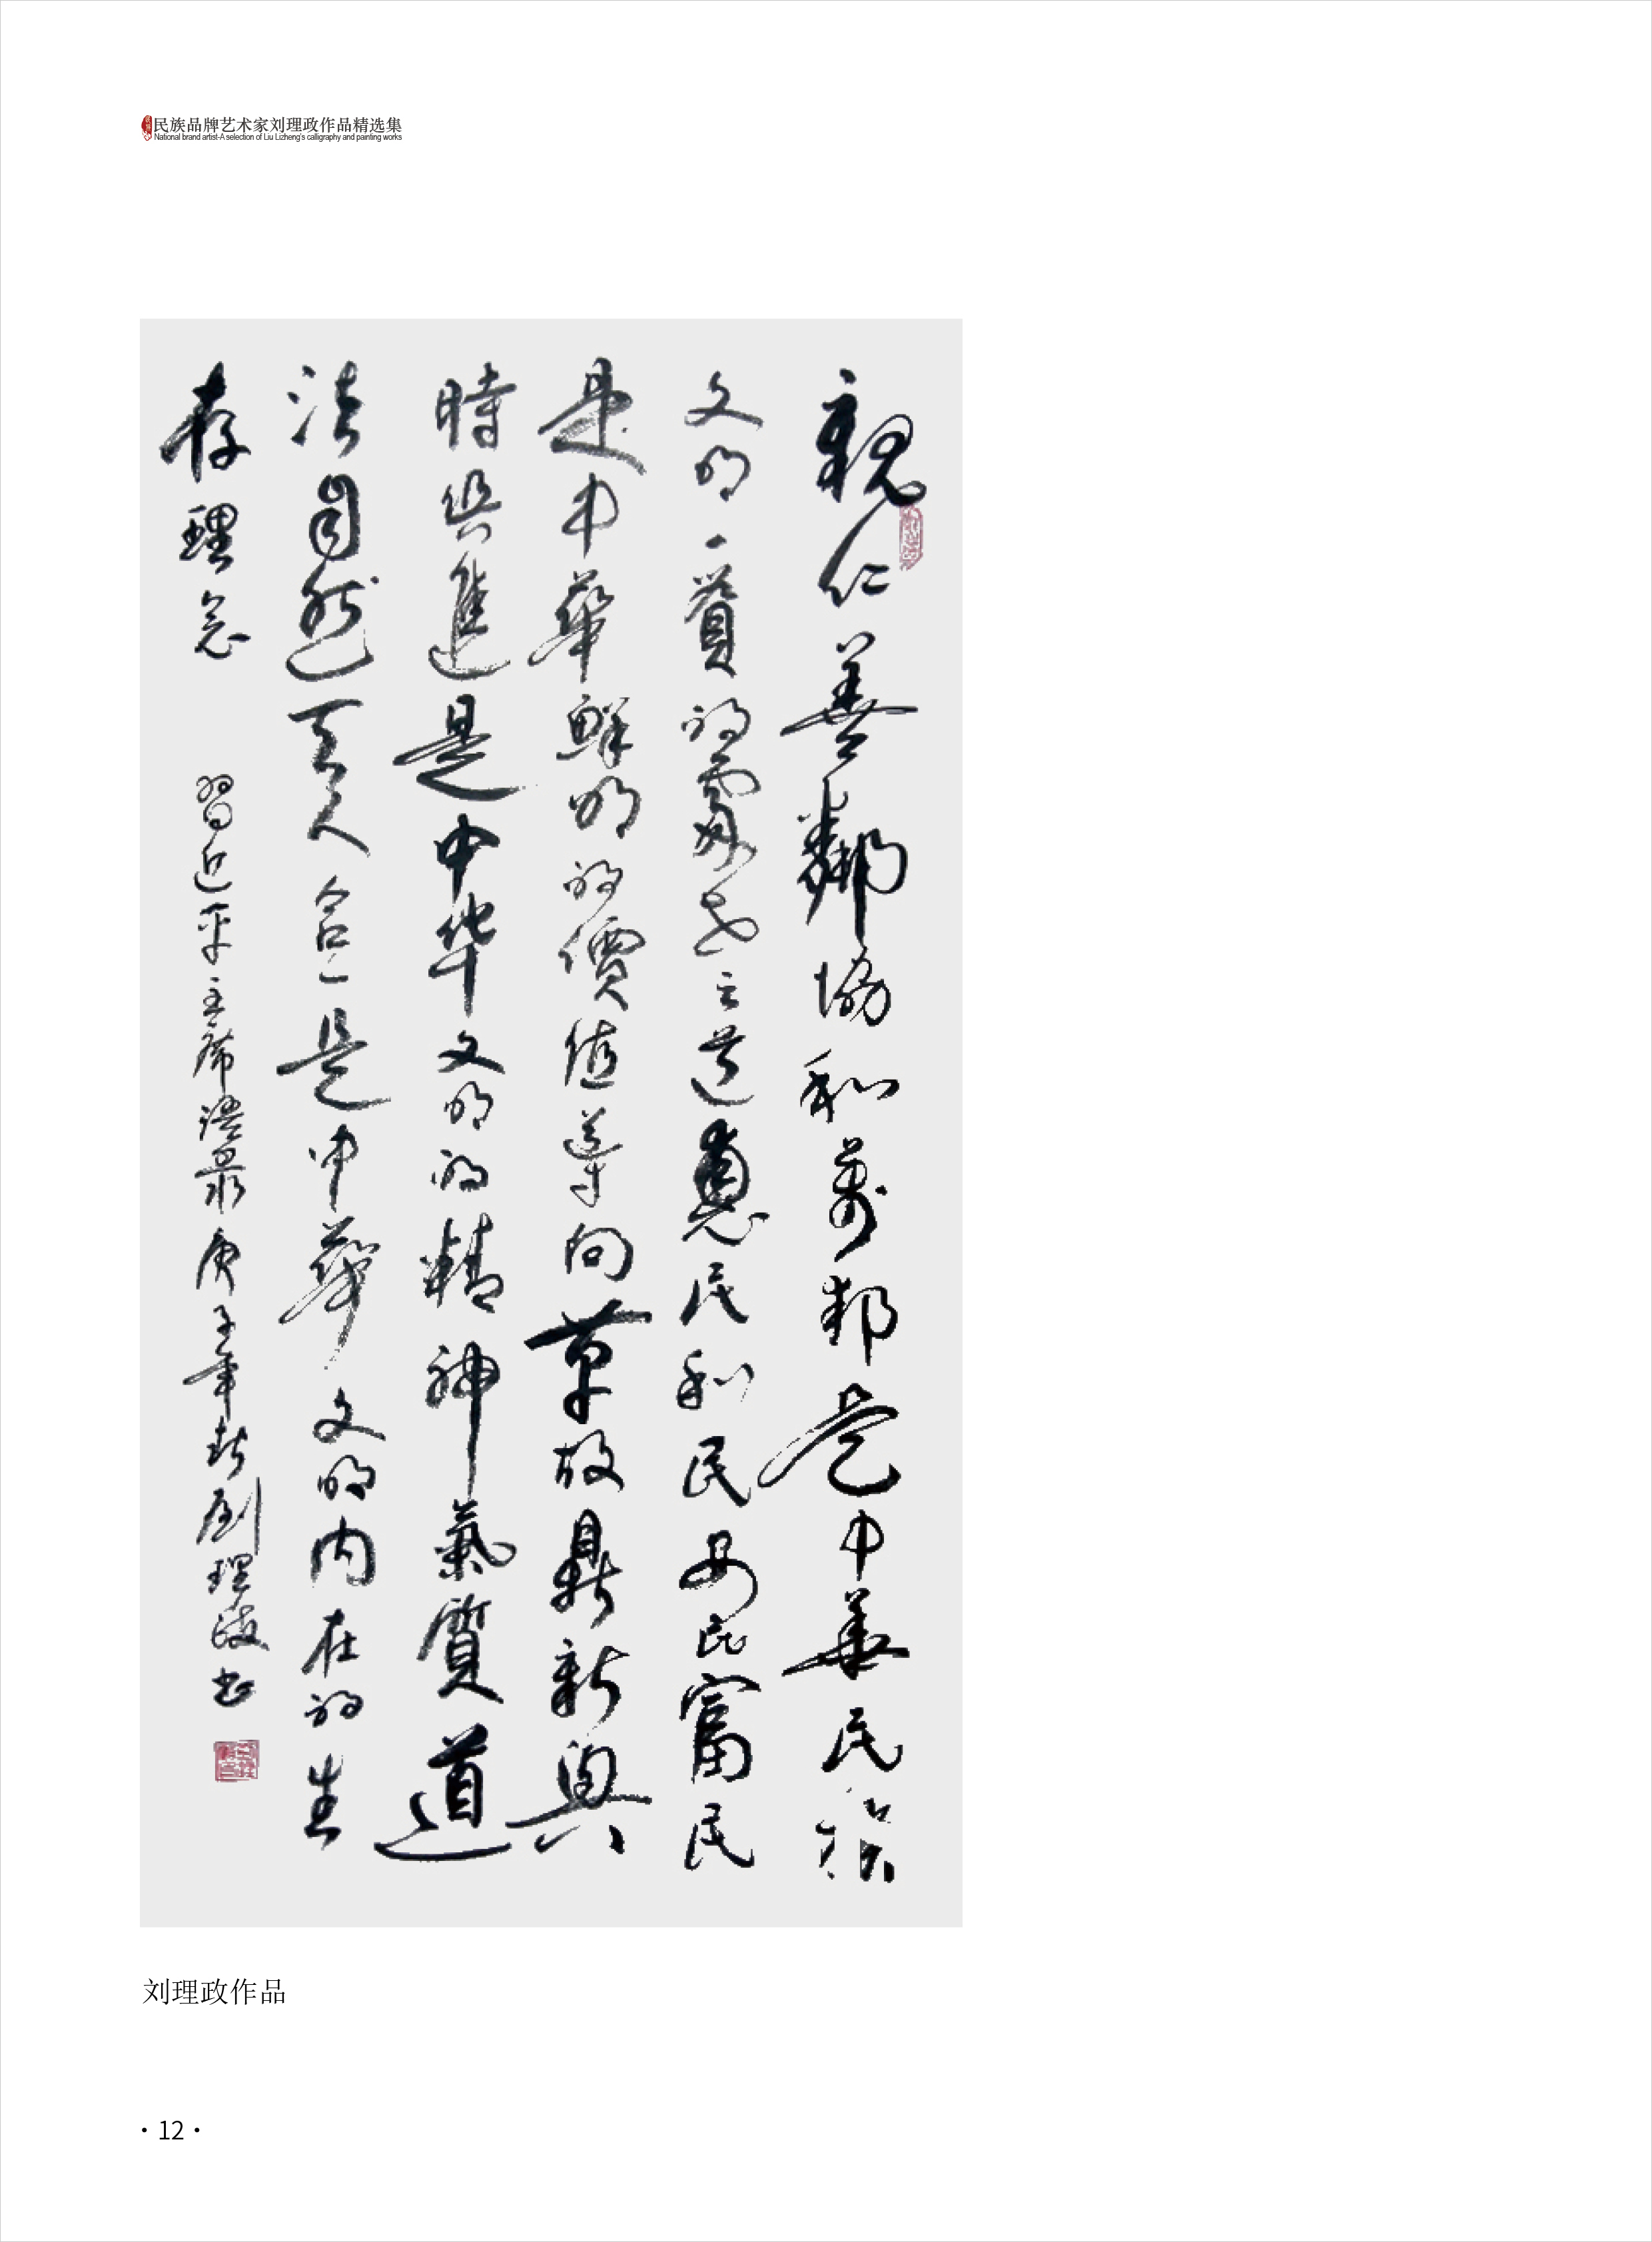 民族品牌艺术家刘理政作品精选集
National brand artist-A selection of Liu Lizheng's calligraphy and painting works
親仁善鄰協和萬邦是中華民族
文明一貫的處世之道惠民利民安民富民
是中華鮮明的價值導向革故鼎新與
時俱進是中华文明的精神氣質道
法自然天人合一是中華文明内在的生
存理念
習近平主席语录庚子年秋刘理政书
刘理政作品
·12·